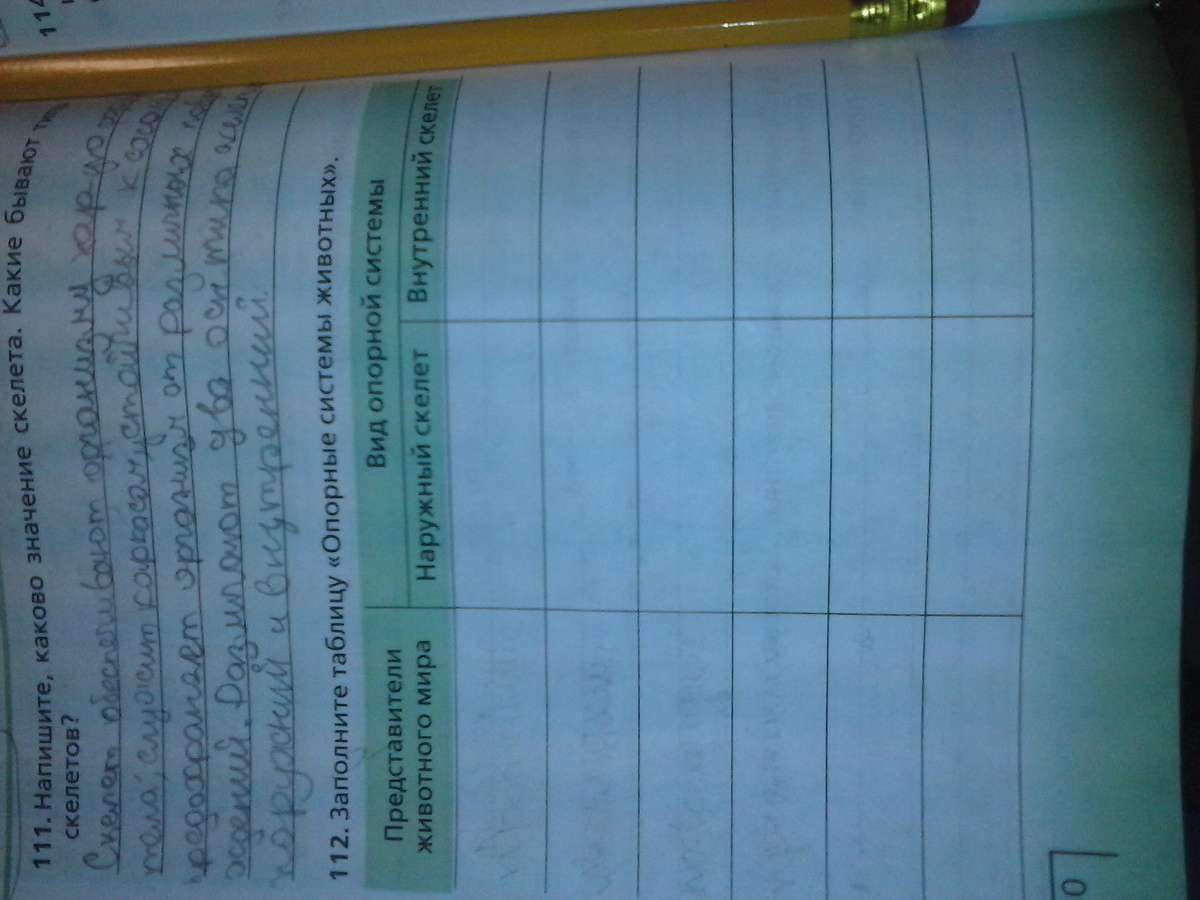 114
111. Напишите, каково значение скелета. Какие бывают ти
скелетов?
Скелет обеспечивают организму
тела, служит каркасом, устойчивым к
предохраняет организм от различных
жений. Различают два осн типа
наружний и внутренний.
112. Заполните таблицу «Опорные системы животных».
Представители животного мира
Вид опорной системы
Наружный скелет
Внутренний скелет
0